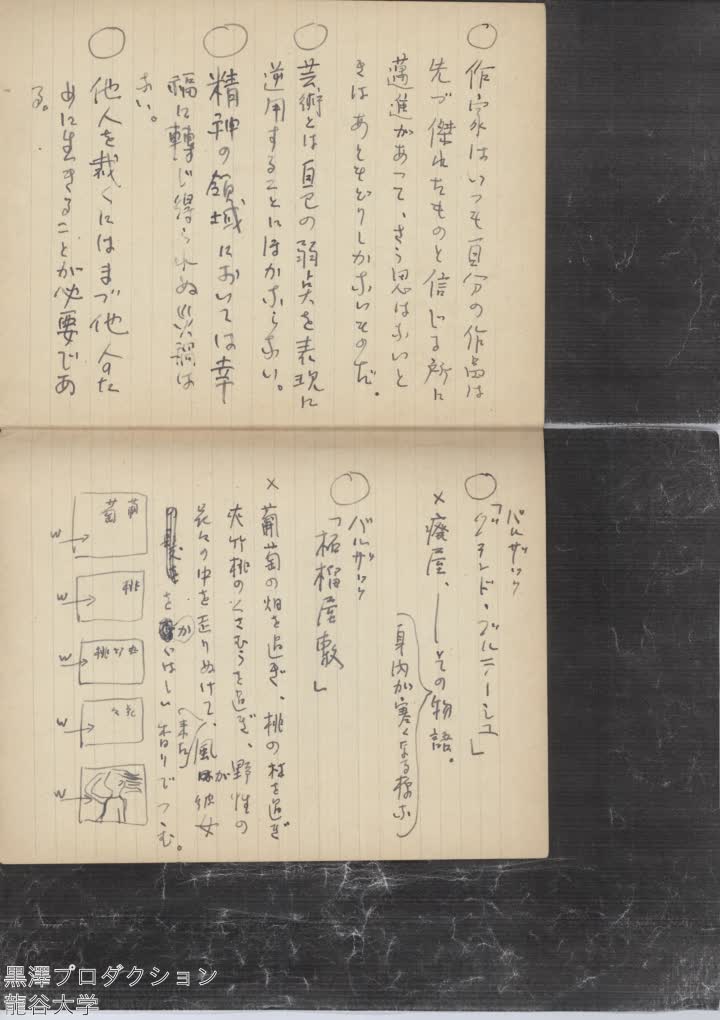 ○ 作家はいつも自分の作品は
先づ傑れたものと信じる所に
邁進があって、さう思はないと
きはあともどりしかないものだ。
○ 芸術とは自己の弱点を表現に
逆用することにほかならない。
○ 精神の領域においては幸
福に轉じ得られぬ災禍は
ない。
○ 他人を裁くにはまづ他人のた
めに生きることが必要であ
る。
○ バルザック
「グランド・ブルテーシュ」
× 癈屋、――その物語。
身内が寒くなる様な
○ バルザック
「柘榴屋敷」
× 葡萄の畑を過ぎ、桃の林を過ぎ
夾竹桃のくさむらを過ぎ、野性の
花々の中を走りぬけて、風が彼女
を かぐはしい香りでつむ。
葡萄
W
桃
W
W
W
W
黒澤プロダクション
龍谷大学